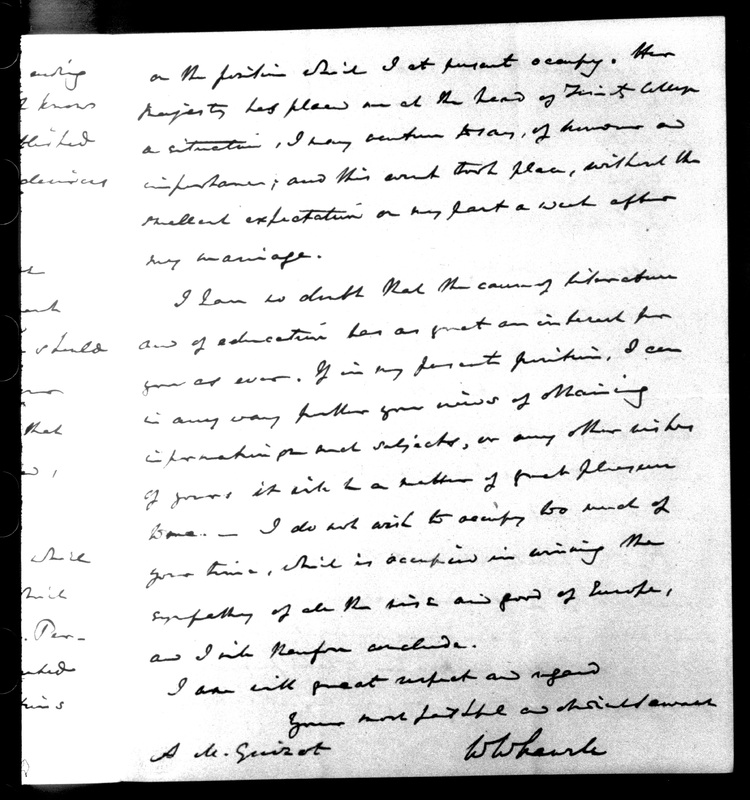 anding
t knows
tlished
desirous
ent
should
your
that
which
hich
. Per-
on the position which I at present occupy. Her
Majesty has placed me at the head of Trinity College
a situation, I may venture to say, of honour and
importance; and this event took place, without the
smallest expectation on my part a week after
my marriage.
I have no doubt that the cause of literature
and of education has as great an interest for
you as ever. If in my present position, I can
in any way further your views of obtaining
information on such subjects, or any other wishes
of yours it will be a matter of great pleasure
to me. — I do not wish to occupy too much of
your time, which is occupied in winning the
sympathy of all the wise and good of Europe,
and I will therefore conclude.
I am with great respect and regard
Your most faithful and obedient servant
A M. Guizot
W Whewell